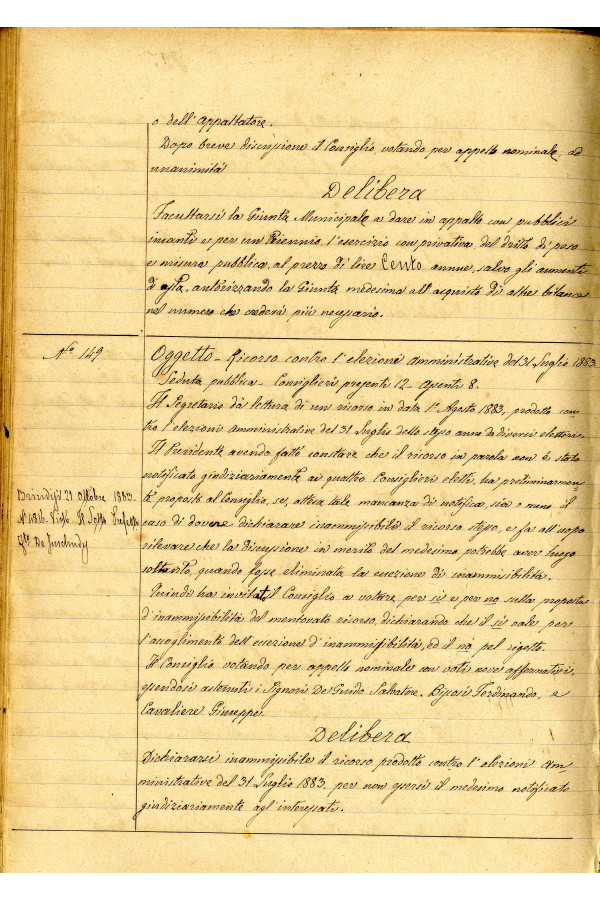 o dell'appaltatore.
Dopo breve discussione il Consiglio votando per appello nominale, ad
unanimità
Delibera
Facultarsi la Giunta Municipale a dare in appalto con pubblici
incanti e per un Triennio l'esercizio con privativa del dritto di peso
e misura pubblica, al prezzo di lire Cento annue, salvo gli aumenti
di asta, autorizzando la Giunta medesima all'acquisto di altre bilance
nel numero che crederà più necessario.
N.º 149
Oggetto - Ricorso contro l'elezioni Amministrative del 31 Luglio 1883
Seduta pubblica - Consiglieri presenti 12 - Assenti 8.
Il Segretario dà lettura di un ricorso in data 1º Agosto 1883, prodotto con
tro l'elezioni Amministrative del 31 Luglio dello stesso anno da diversi elettori.
Il Presidente avendo fatto constare che il ricorso in parola non è stato
notificato giudiziariamente ai quattro Consiglieri eletti, ha preliminarmen
te proposto al Consiglio, se, attesa tale mancanza di notifica, sia o meno il
caso di dovere dichiarare inammissibile il ricorso stesso, e fa all'uopo
rilevare che la discussione in merito del medesimo potrebbe aver luogo
soltanto, quando fosse eliminata la eccezione di inammissibilità.
Quindi ha invitato il Consiglio a votare per sì e per no sulla proposta
d'inammissibilità del mentovato ricorso, dichiarando che il sì vale per
l'accoglimento dell'eccezione d'inammissibilità, ed il no pel rigetto.
Il Consiglio votando per appello nominale con voti nove affermativi, es
sendosi astenuti i Signori De Guido Salvatore, Bisosi Ferdinando, e
Cavaliere Giuseppe
Delibera
Dichiararsi inammissibile il ricorso prodotto contro l'elezioni Am=
ministrative del 31 Luglio 1883, per non essersi il medesimo notificato
giudiziariamente agl'interessati.
Brindisi 21 Ottobre 1883
Visto Il Sotto Prefetto